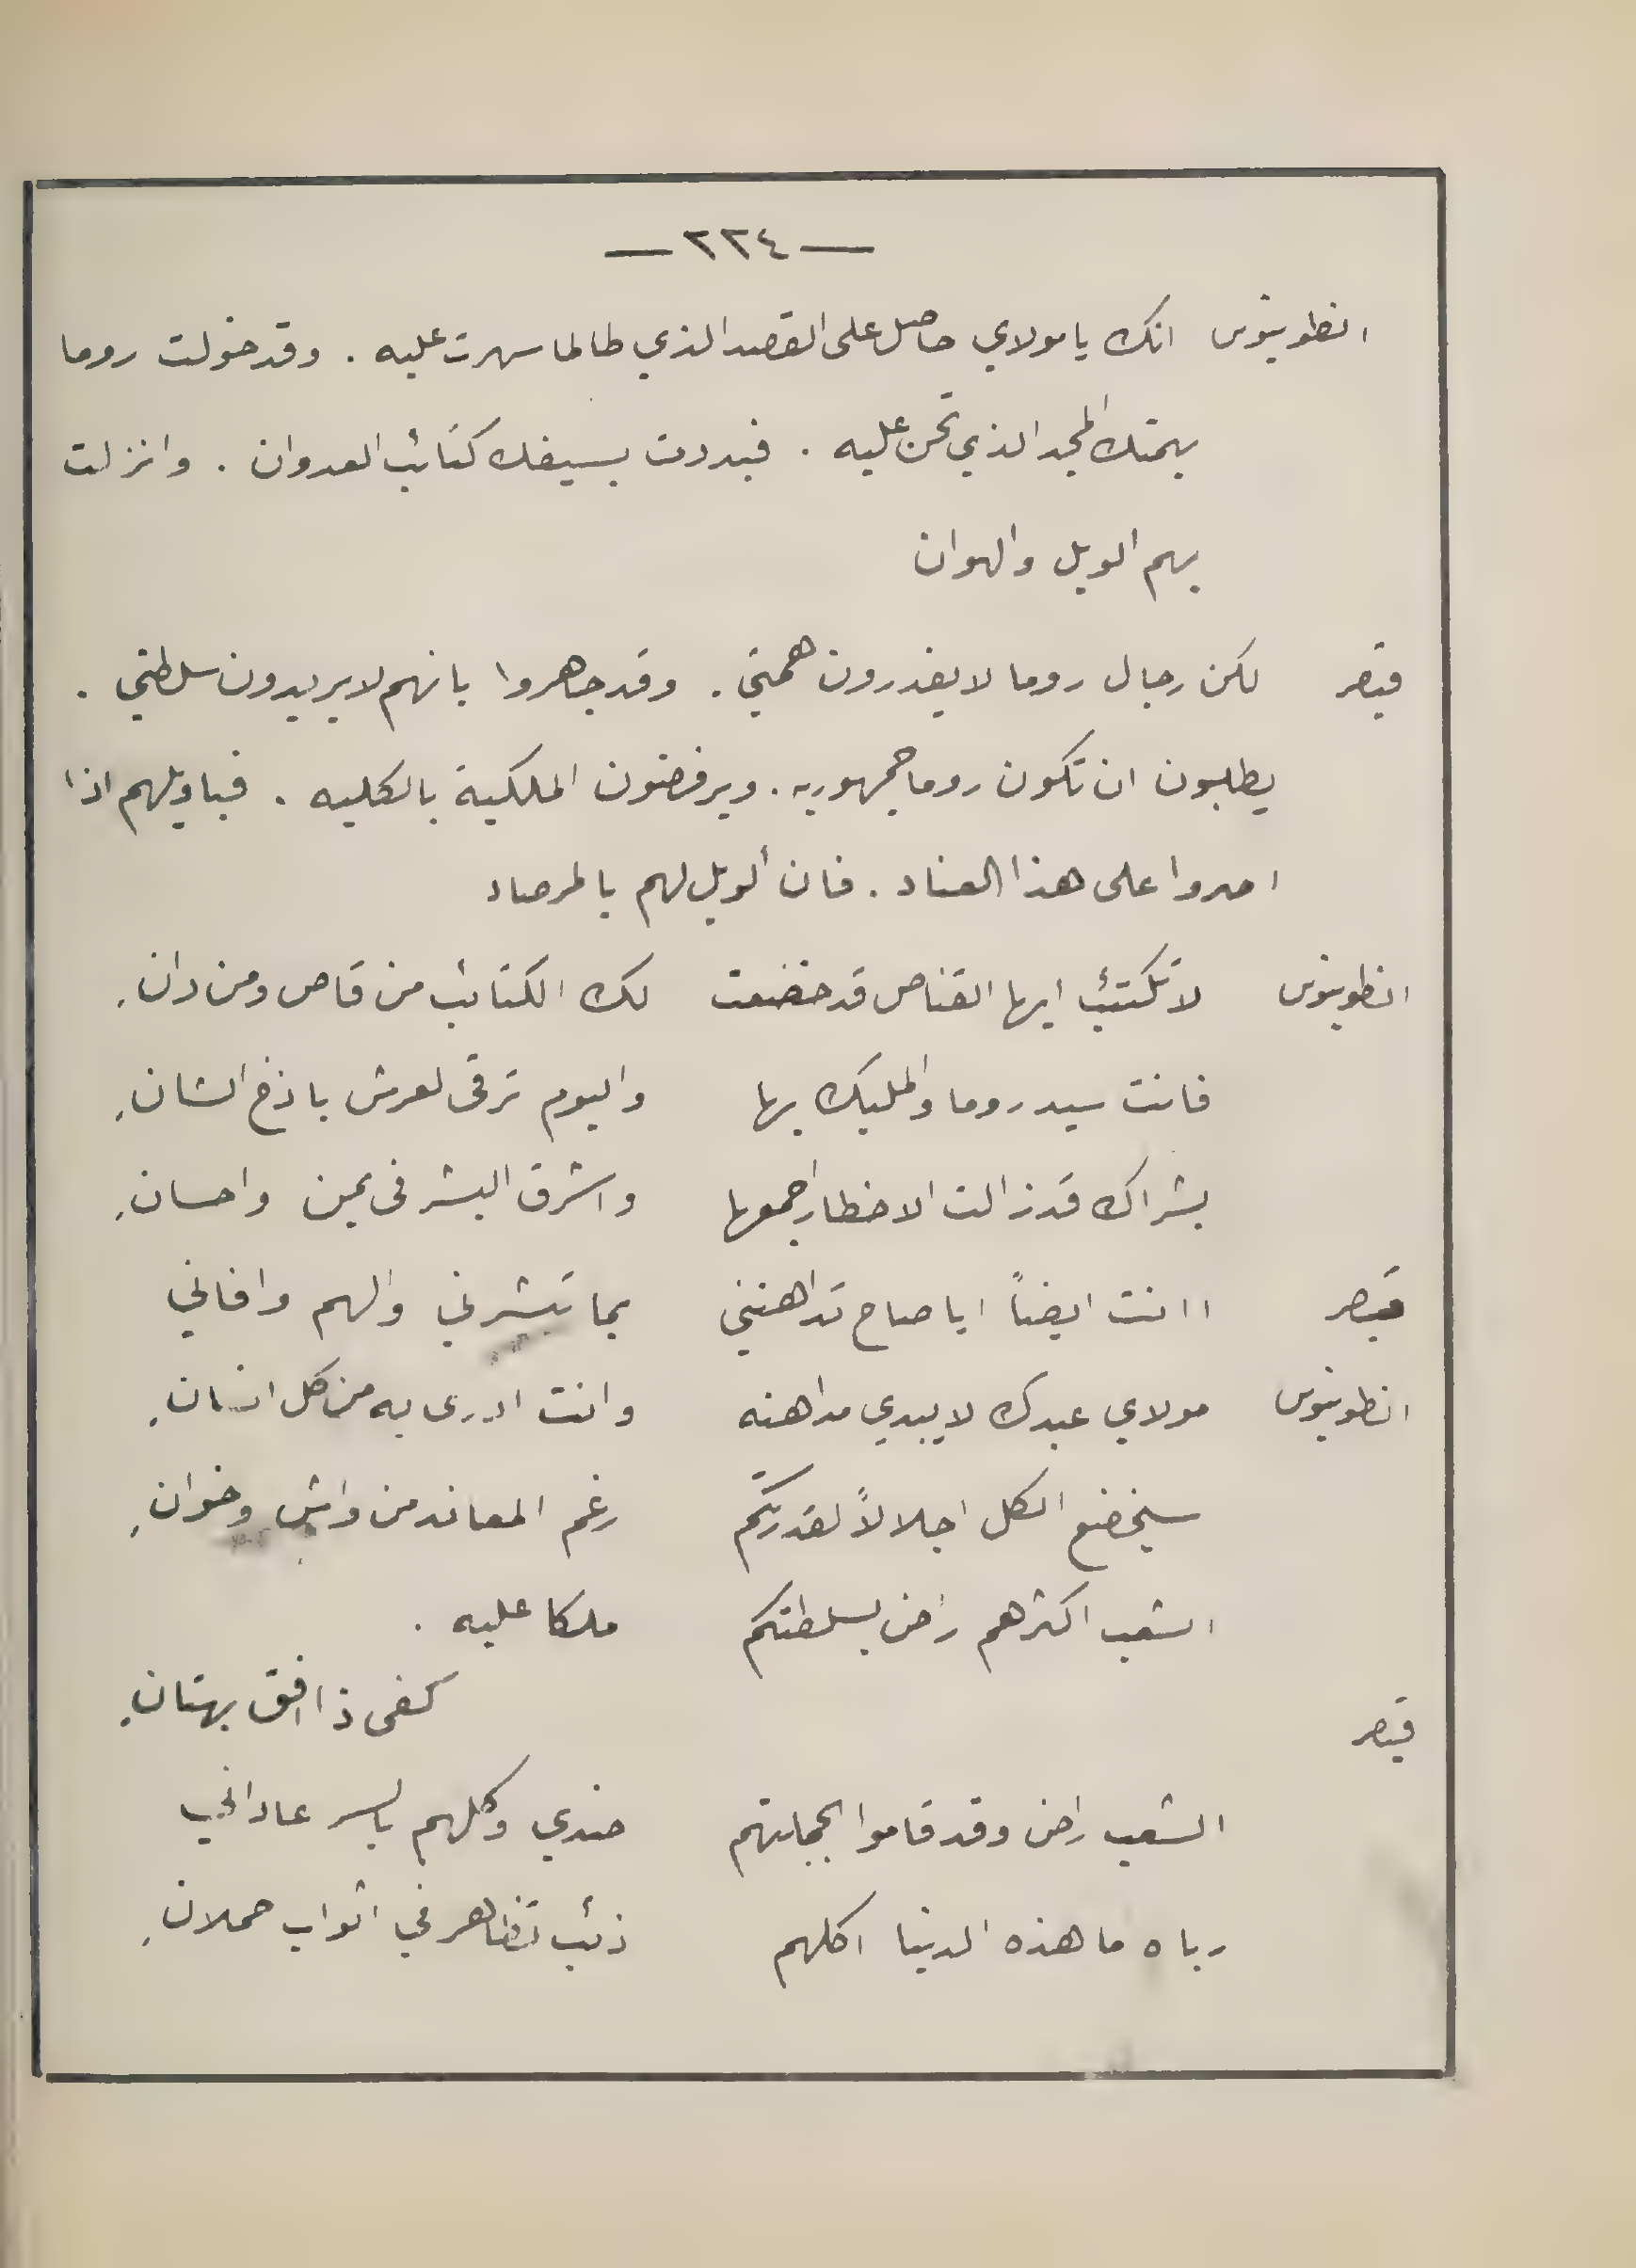 — ٢٢٤ —
انطونيوس انك يا مولاي حاصل على القصد الذي طالما سهرت عليه . وقد خولت روما
بهمتك المجد الذي تحن عليه . فبددت بسيفك كتائب العدوان . وانزلت
بهم الويل والهوان
قيصر لكن رجال روما لا يقدرون همتي . وقد جاهروا بانهم لا يريدون سلطتي .
يطلبون ان تكون روما جمهوريه . ويرفضون الملكية بالكليه . فياويلهم اذا
اصروا على هذا العناد . فان الويل لهم بالمرصاد
انطونيوس لا تكتئب ايها القناص قد خضعت لك الكتائب من قاص ومن دانِ
فانت سيد روما والمليك بها واليوم ترقى لعرش باذخ الشانِ
بشراك قد زالت الاخطار اجمعها واشرق البشر في يمن واحسانِ
قيصر اانت ايضاً ايا صاح تداهنني بما تبشرني والهم وافاني
انطونيوس مولاي عبدك لا يبدي مداهنه وانت ادرى به من كل انسانِ
سيخضع الكل اجلالاً لقدرتكم رغم المعاند من واشٍ وخوانِ
الشعب اكثرهم راضٍ بسلطتكم ملكا عليه .
قيصر كفى ذا افق بهتانِ
الشعب راض وقد قاموا بجملتهم ضدي وكلهم بالسر عاداني
رباه ما هذه الدنيا اكلهم ذئب تظاهر في اثواب حملانِ